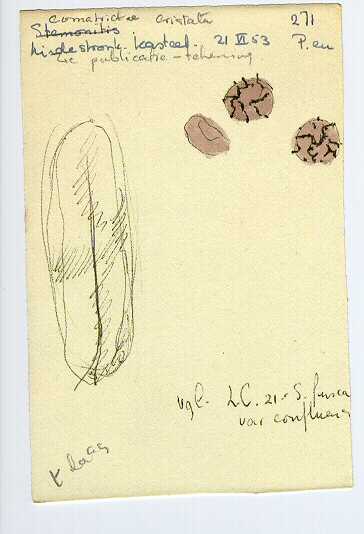 comatricha cristata
Stemonitis 271
lindestronk kasteel. 21 VI 53 P. en
zie publicatie-tekening
vgl. L.C. 21. S. fusca
var confluens
Klaas